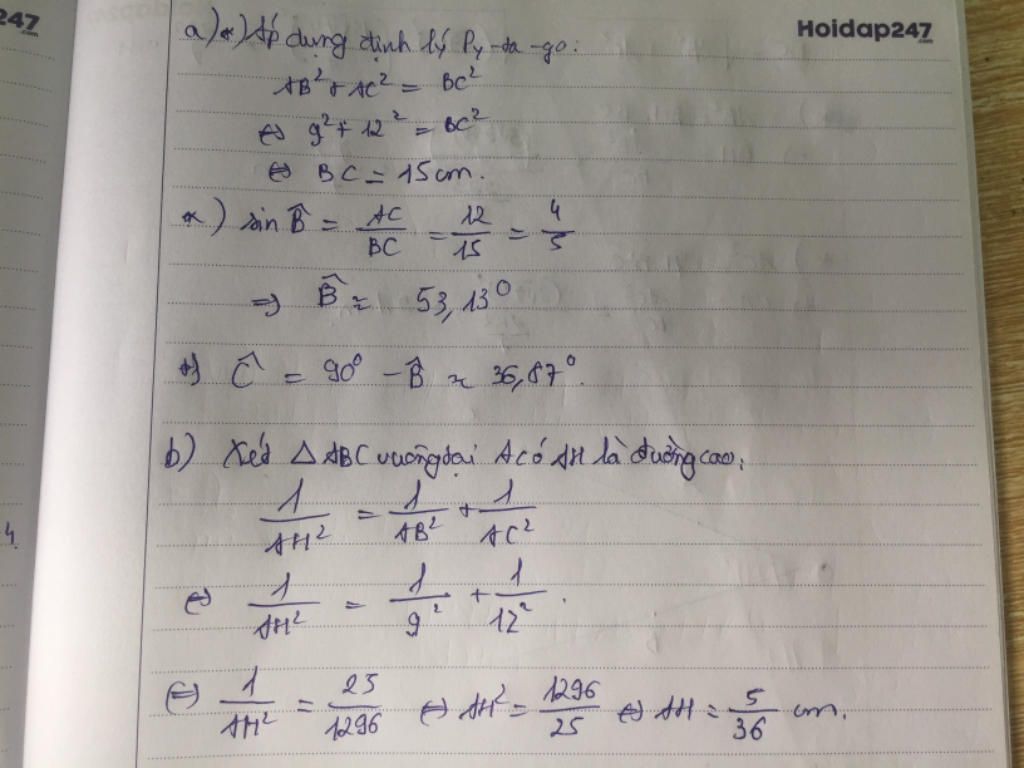 247
.com
Hoidap247
.com
a) *) Áp dụng định lý Py-ta-go:
AB² + AC² = BC²
⇔ 9² + 12² = BC²
⇔ BC = 15 cm.
*) sin B̂ = AC/BC = 12/15 = 4/5
⇒ B̂ ≈ 53,13°
*) Ĉ = 90° - B̂ ≈ 36,87°.
b) Xét △ ABC vuông tại A có AH là đường cao,
1/AH² = 1/AB² + 1/AC²
⇔ 1/AH² = 1/9² + 1/12².
4
⇔ 1/AH² = 25/1296 ⇔ AH² = 1296/25 ⇔ AH = 5/36 cm.